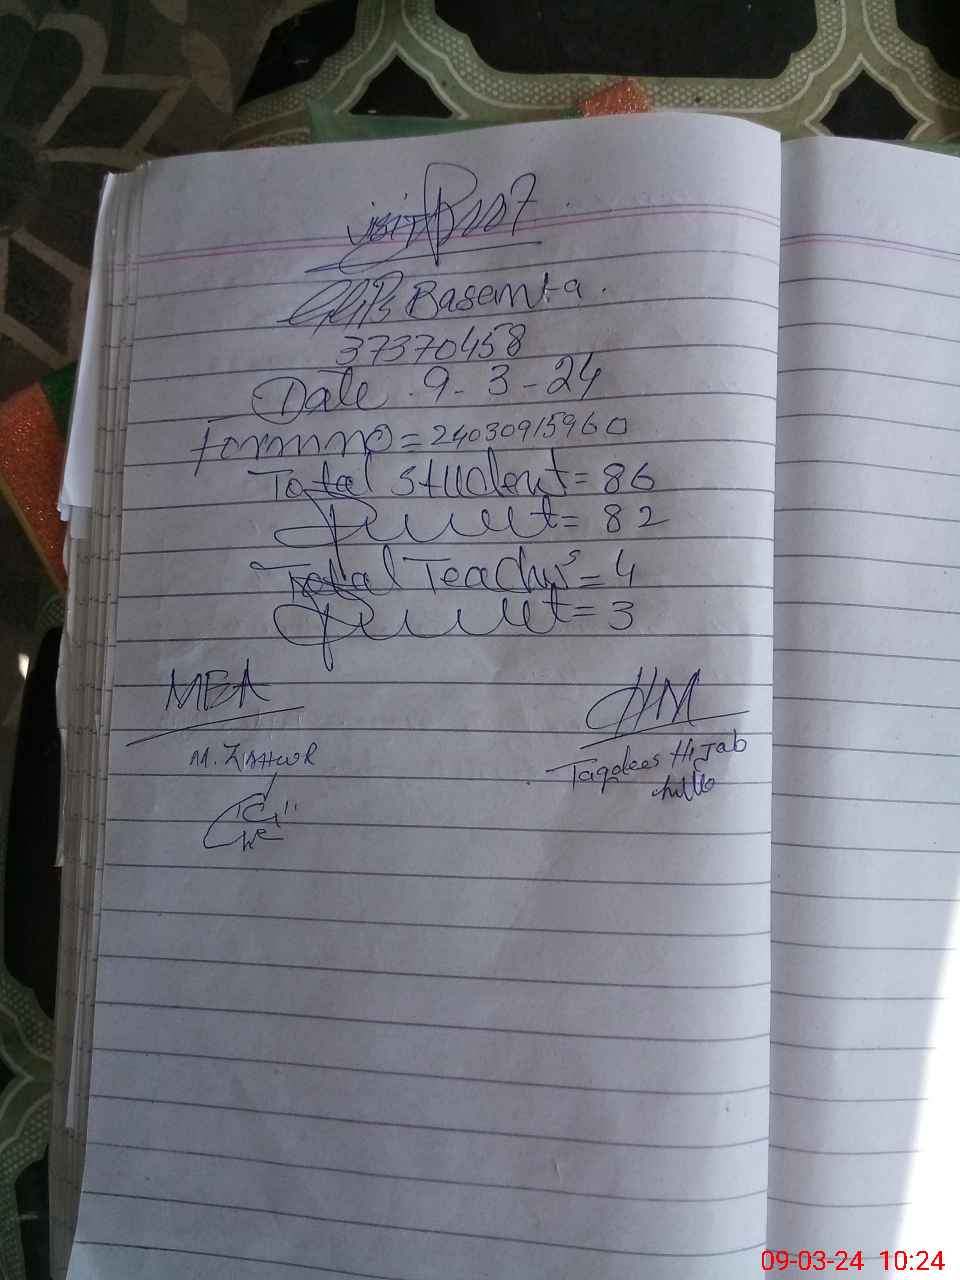 Visit
Basemta.
37370458
Date. 9-3-24
Form no = 24030915960
Total student = 86
Present = 82
Total Teachers = 4
Present = 3
MEA
M. ZAHOOR
HM
Taqdees Hijab
09-03-24 10:24